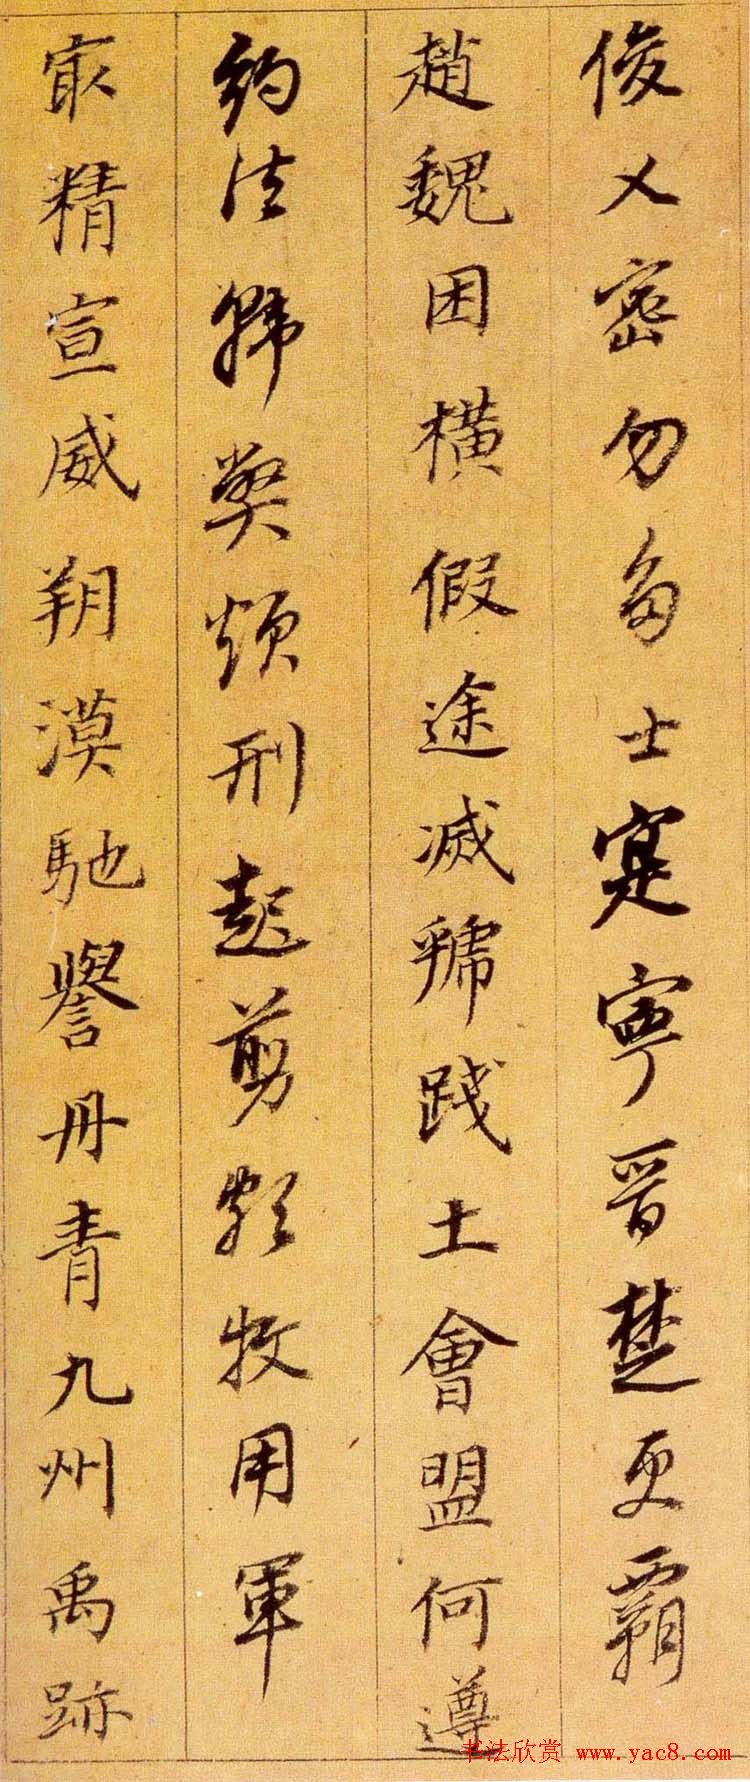 俊乂密勿多士寔寧晋楚更霸
趙魏困橫假途滅虢踐土會盟何遵
約法韩弊煩刑起翦頗牧用軍
宣精宣威朔漠馳譽丹青九州禹跡
书法欣赏 www.yac8.com